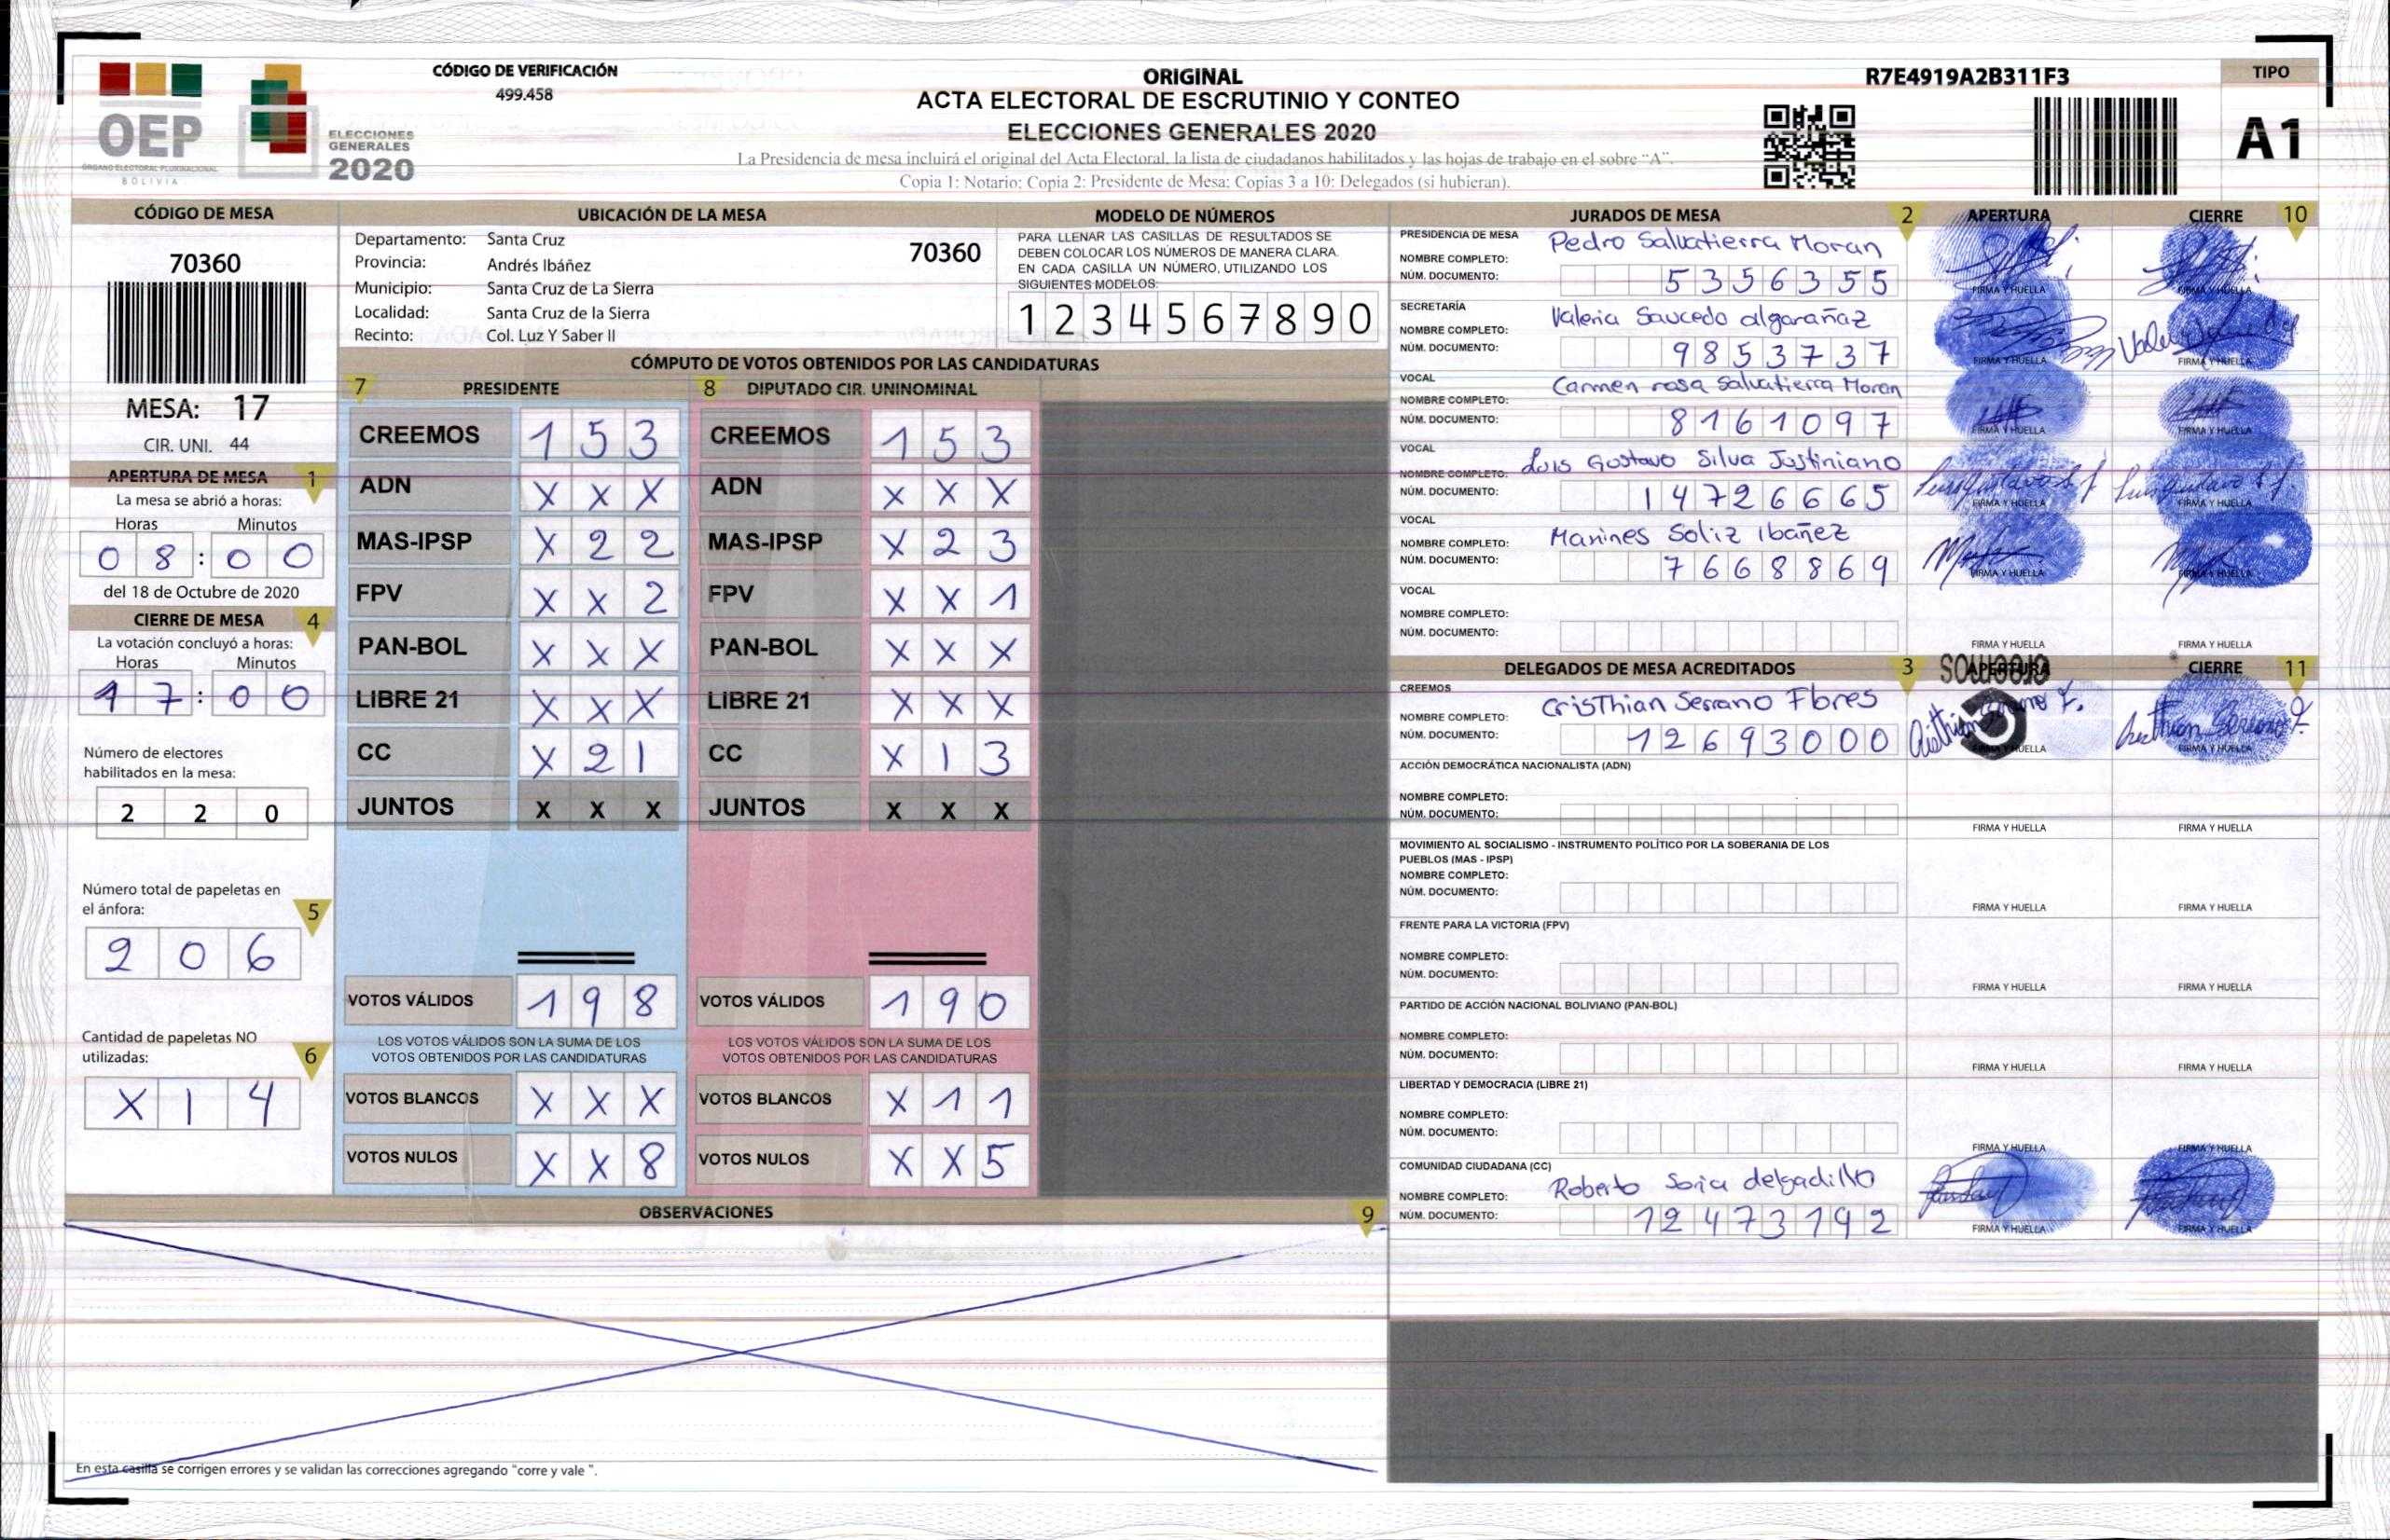 CÓDIGO DE VERIFICACIÓN
499.458
ORIGINAL
ACTA ELECTORAL DE ESCRUTINIO Y CONTEO
ELECCIONES GENERALES 2020
La Presidencia de mesa incluirá el original del Acta Electoral, la lista de ciudadanos habilitados y las hojas de trabajo en el sobre "A".
Copia 1: Notario; Copia 2: Presidente de Mesa; Copias 3 a 10: Delegados (si hubieran).
R7E4919A2B311F3
TIPO
A1
OEP
ÓRGANO ELECTORAL PLURINACIONAL
BOLIVIA
ELECCIONES
GENERALES
2020
CÓDIGO DE MESA
70360
MESA: 17
CIR. UNI. 44
APERTURA DE MESA 1
La mesa se abrió a horas:
Horas Minutos
0 8 : 0 0
del 18 de Octubre de 2020
CIERRE DE MESA 4
La votación concluyó a horas:
Horas Minutos
1 7 : 0 0
Número de electores
habilitados en la mesa:
2 2 0
Número total de papeletas en
el ánfora: 5
2 0 6
Cantidad de papeletas NO
utilizadas: 6
X 1 4
UBICACIÓN DE LA MESA
Departamento: Santa Cruz 70360
Provincia: Andrés Ibáñez
Municipio: Santa Cruz de La Sierra
Localidad: Santa Cruz de la Sierra
Recinto: Col. Luz Y Saber II
MODELO DE NÚMEROS
PARA LLENAR LAS CASILLAS DE RESULTADOS SE
DEBEN COLOCAR LOS NÚMEROS DE MANERA CLARA.
EN CADA CASILLA UN NÚMERO, UTILIZANDO LOS
SIGUIENTES MODELOS:
1 2 3 4 5 6 7 8 9 0
CÓMPUTO DE VOTOS OBTENIDOS POR LAS CANDIDATURAS
7 PRESIDENTE 8 DIPUTADO CIR. UNINOMINAL
CREEMOS 1 5 3 CREEMOS 1 5 3
ADN X X X ADN X X X
MAS-IPSP X 2 2 MAS-IPSP X 2 3
FPV X X 2 FPV X X 1
PAN-BOL X X X PAN-BOL X X X
LIBRE 21 X X X LIBRE 21 X X X
CC X 2 1 CC X 1 3
JUNTOS X X X JUNTOS X X X
VOTOS VÁLIDOS 1 9 8 VOTOS VÁLIDOS 1 9 0
LOS VOTOS VÁLIDOS SON LA SUMA DE LOS LOS VOTOS VÁLIDOS SON LA SUMA DE LOS
VOTOS OBTENIDOS POR LAS CANDIDATURAS VOTOS OBTENIDOS POR LAS CANDIDATURAS
VOTOS BLANCOS X X X VOTOS BLANCOS X 1 1
VOTOS NULOS X X 8 VOTOS NULOS X X 5
OBSERVACIONES 9
En esta casilla se corrigen errores y se validan las correcciones agregando "corre y vale ".
JURADOS DE MESA 2 APERTURA CIERRE 10
PRESIDENCIA DE MESA
NOMBRE COMPLETO: Pedro Salvatierra Moran
NÚM. DOCUMENTO: 5 3 5 6 3 5 5
FIRMA Y HUELLA FIRMA Y HUELLA
SECRETARÍA
NOMBRE COMPLETO: Valeria Saucedo algarañaz
NÚM. DOCUMENTO: 9 8 5 3 7 3 7
FIRMA Y HUELLA FIRMA Y HUELLA
VOCAL
NOMBRE COMPLETO: Carmen rosa Salvatierra Moran
NÚM. DOCUMENTO: 8 1 6 1 0 9 7
FIRMA Y HUELLA FIRMA Y HUELLA
VOCAL
NOMBRE COMPLETO: Luis Gustavo Silva Justiniano
NÚM. DOCUMENTO: 1 4 7 2 6 6 6 5
FIRMA Y HUELLA FIRMA Y HUELLA
VOCAL
NOMBRE COMPLETO: Marines Soliz Ibañez
NÚM. DOCUMENTO: 7 6 6 8 8 6 9
FIRMA Y HUELLA FIRMA Y HUELLA
VOCAL
NOMBRE COMPLETO:
NÚM. DOCUMENTO:
FIRMA Y HUELLA FIRMA Y HUELLA
DELEGADOS DE MESA ACREDITADOS 3 APERTURA CIERRE 11
CREEMOS
NOMBRE COMPLETO: CrisThian Serrano Flores
NÚM. DOCUMENTO: 1 2 6 9 3 0 0 0
FIRMA Y HUELLA FIRMA Y HUELLA
ACCIÓN DEMOCRÁTICA NACIONALISTA (ADN)
NOMBRE COMPLETO:
NÚM. DOCUMENTO:
FIRMA Y HUELLA FIRMA Y HUELLA
MOVIMIENTO AL SOCIALISMO - INSTRUMENTO POLÍTICO POR LA SOBERANIA DE LOS
PUEBLOS (MAS - IPSP)
NOMBRE COMPLETO:
NÚM. DOCUMENTO:
FIRMA Y HUELLA FIRMA Y HUELLA
FRENTE PARA LA VICTORIA (FPV)
NOMBRE COMPLETO:
NÚM. DOCUMENTO:
FIRMA Y HUELLA FIRMA Y HUELLA
PARTIDO DE ACCIÓN NACIONAL BOLIVIANO (PAN-BOL)
NOMBRE COMPLETO:
NÚM. DOCUMENTO:
FIRMA Y HUELLA FIRMA Y HUELLA
LIBERTAD Y DEMOCRACIA (LIBRE 21)
NOMBRE COMPLETO:
NÚM. DOCUMENTO:
FIRMA Y HUELLA FIRMA Y HUELLA
COMUNIDAD CIUDADANA (CC)
NOMBRE COMPLETO: Roberto Soria delgadillo
NÚM. DOCUMENTO: 1 2 4 7 3 1 9 2
FIRMA Y HUELLA FIRMA Y HUELLA